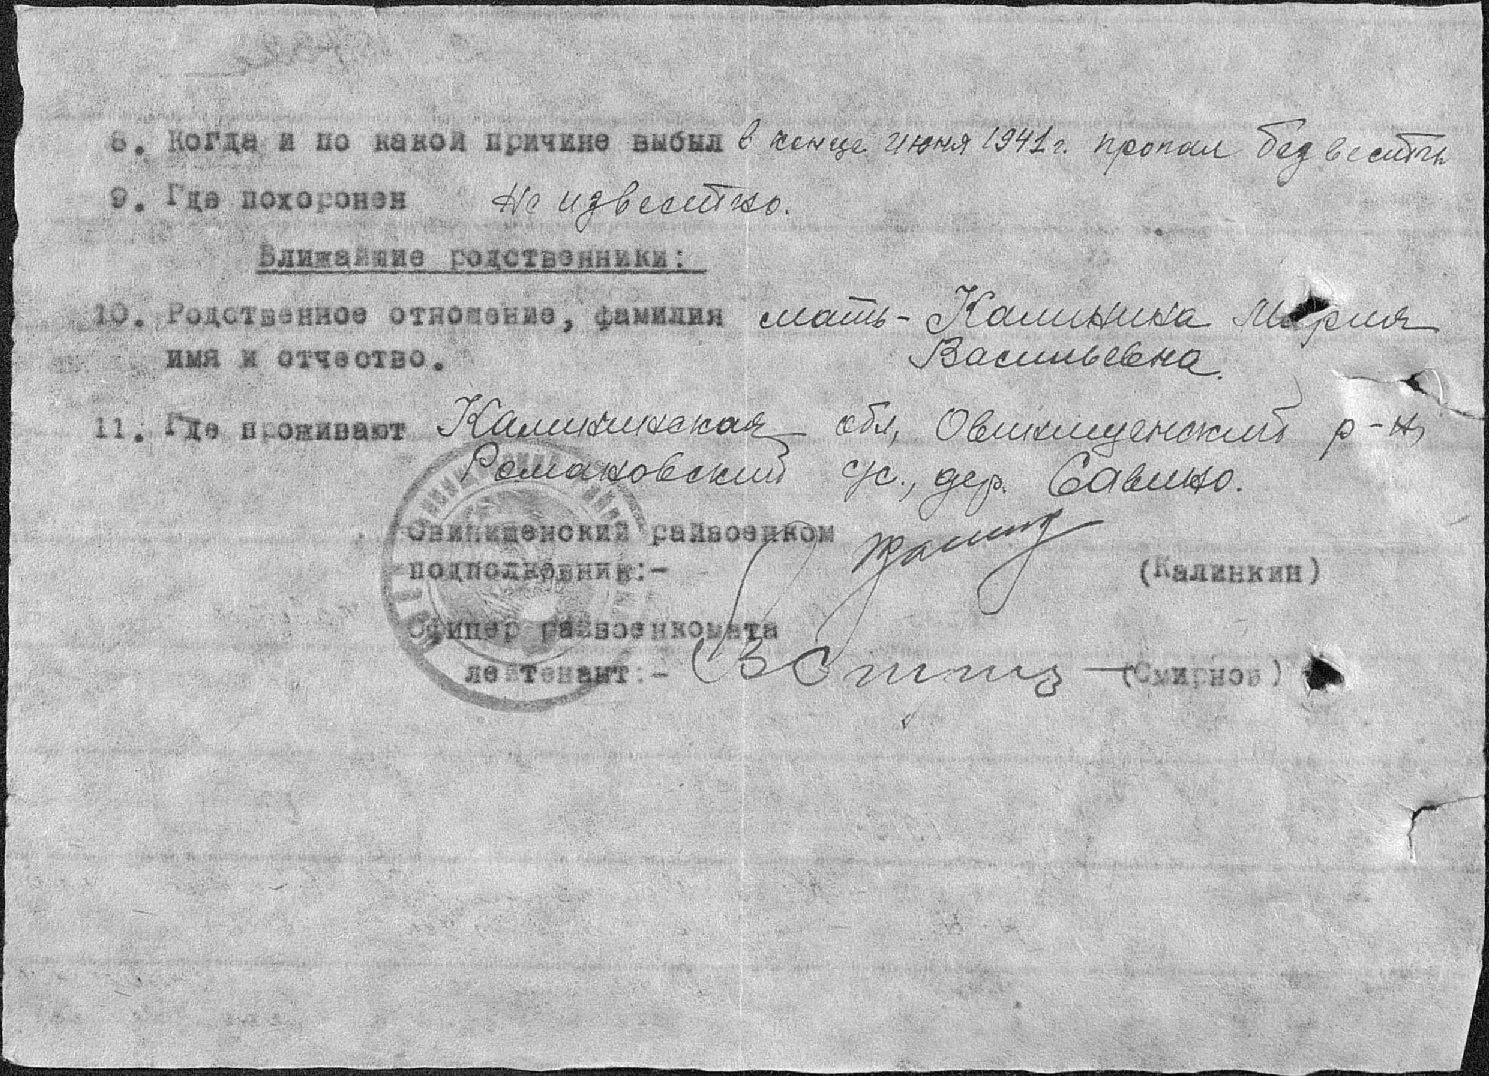 8. Когда и по какой причине выбыл в конце июня 1941 г. пропал без вести
9. Где похоронен Не известно.
Ближайшие родственники:
10. Родственное отношение, фамилия мать - Калинина Мария
имя и отчество. Васильевна.
11. Где проживают Калининская обл, Овинищенский р-н,
Романовский с/с., дер. Савино.
Овинищенский райвоенком
подполковник:- (Калинкин)
Офицер райвоенкомата
лейтенант:- (Смирнов)